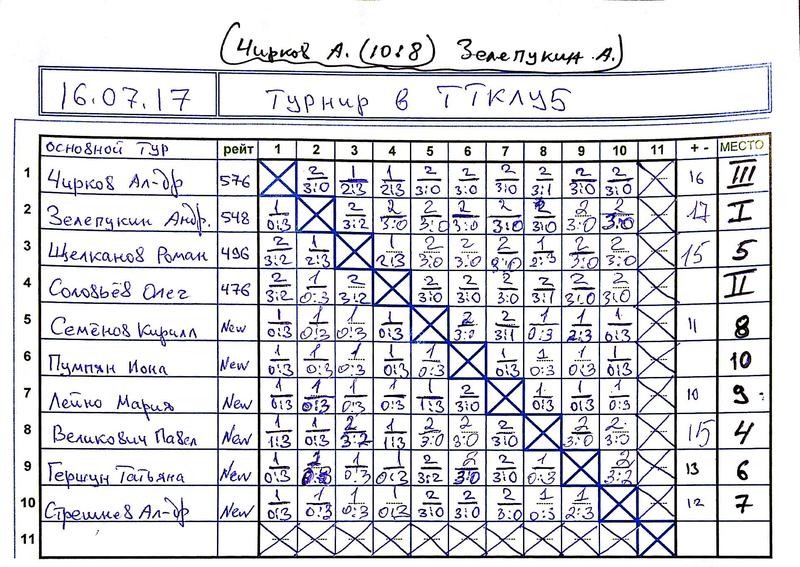 (Чирков А. (10:8) Зелепукин А.)
16.07.17 Турнир в ТТКЛУБ
основной тур рейт 1 2 3 4 5 6 7 8 9 10 11 + - МЕСТО
1 Чирков Ал-др 576 2 3:0 1 2:3 1 2:3 2 3:0 2 3:0 2 3:0 2 3:1 2 3:0 2 3:0 16 III
2 Зелепукин Андр. 548 1 0:3 2 3:2 2 3:0 2 3:0 2 3:0 2 3:0 2 3:0 2 3:0 2 3:0 17 I
3 Щелканов Роман 496 2 3:2 1 2:3 1 2:3 2 3:0 2 3:0 2 3:0 1 2:3 2 3:0 2 3:0 15 5
4 Соловьёв Олег 476 2 3:2 1 0:3 2 3:2 2 3:0 2 3:0 2 3:0 2 3:1 2 3:0 2 3:0 II
5 Семёнов Кирилл New 1 0:3 1 0:3 1 0:3 1 0:3 2 3:0 2 3:1 1 0:3 1 2:3 1 0:3 11 8
6 Пумпян Иона New 1 0:3 1 0:3 1 0:3 1 0:3 1 0:3 1 0:3 1 0:3 1 0:3 1 0:3 10
7 Лейко Мария New 1 0:3 1 0:3 1 0:3 1 0:3 1 1:3 2 3:0 1 0:3 1 0:3 1 0:3 10 9
8 Великович Павел New 1 1:3 1 0:3 2 3:2 1 1:3 2 3:0 2 3:0 2 3:0 2 3:0 2 3:0 15 4
9 Гершун Татьяна New 1 0:3 0:3 1 0:3 1 0:3 2 3:2 2 3:0 2 3:0 1 0:3 2 3:2 13 6
10 Стрешнев Ал-др New 1 0:3 1 0:3 1 0:3 1 0:3 2 3:0 2 3:0 2 3:0 1 0:3 1 2:3 12 7
11